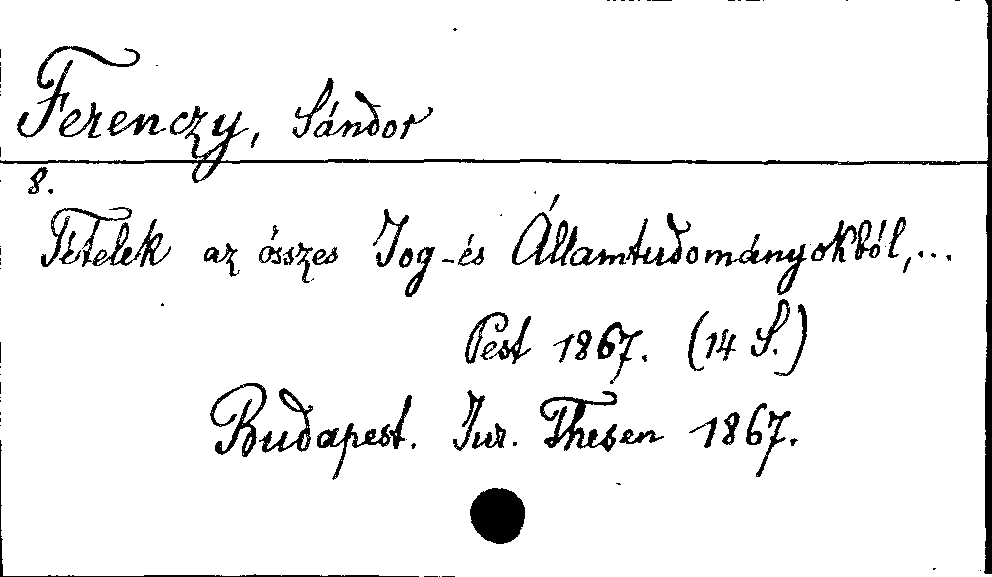 Ferenczy, Sándor
8.
Tételek az összes Jog-és Államtudományokból,...
Pest 1867. (14 S.)
Budapest. Jur. Thesen 1867.